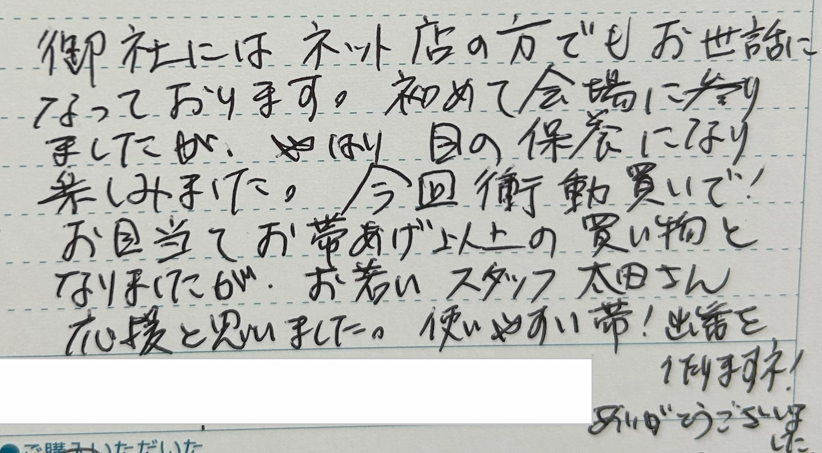 御社にはネット店の方でもお世話に
なっております。初めて会場に参り
ましたが、やはり目の保養になり
楽しみました。今回衝動買いで!
お目当てお帯あげ以上の買い物と
なりましたが、お若いスタッフ太田さん
応援と思いました。使いやすい帯!出番を
作りますネ!
ありがとうございま
した
●ご購入いただいた